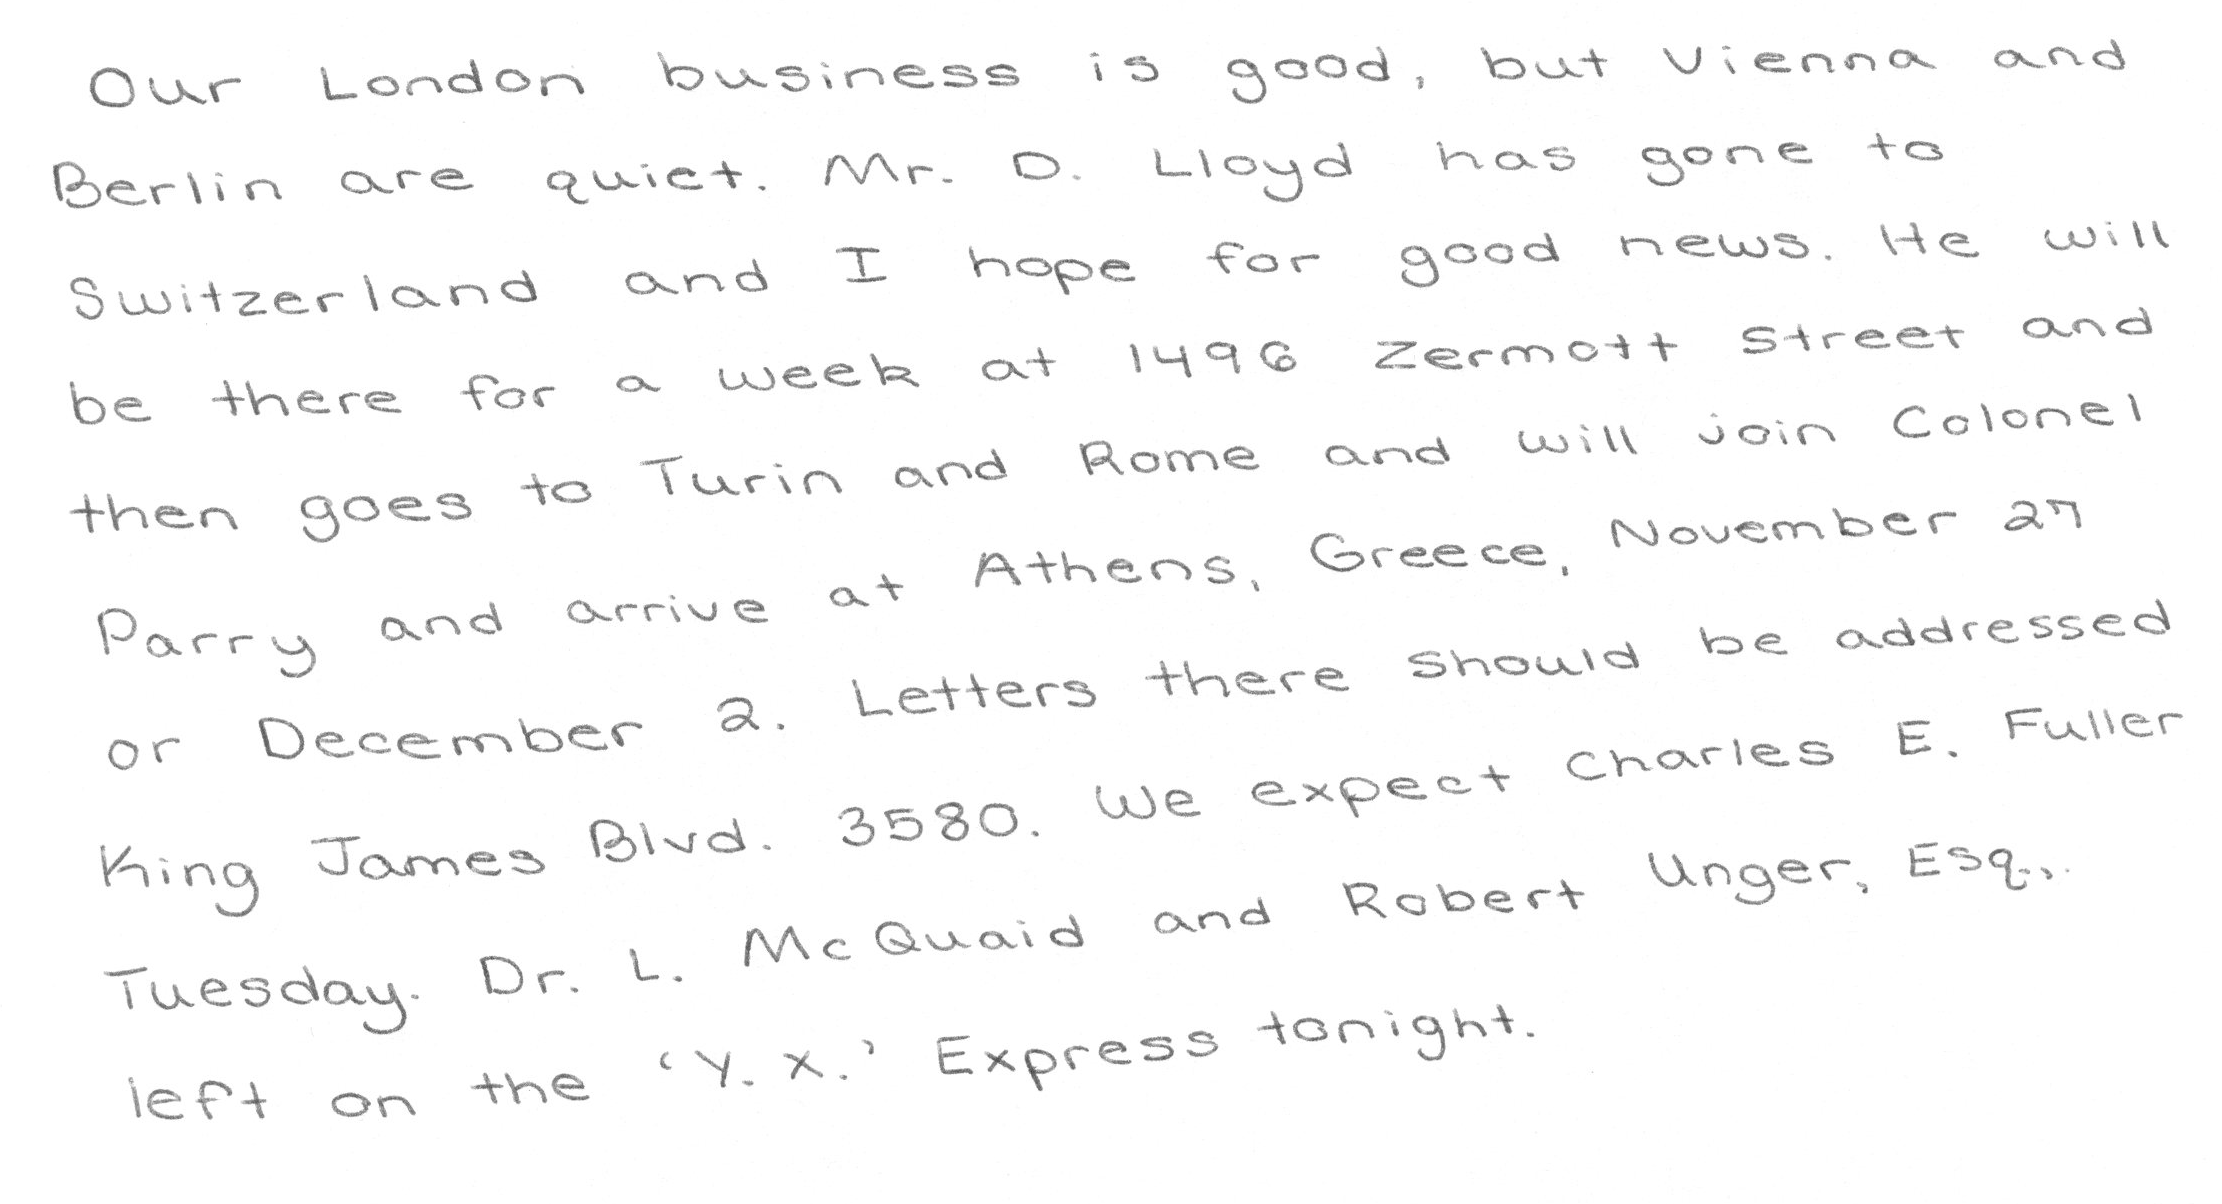 Our London business is good, but Vienna and
Berlin are quiet. Mr. D. Lloyd has gone to
Switzerland and I hope for good news. He will
be there for a week at 1496 Zermott Street and
then goes to Turin and Rome and will join Colonel
Parry and arrive at Athens, Greece, November 27
or December 2. Letters there should be addressed
King James Blvd. 3580. We expect Charles E. Fuller
Tuesday. Dr. L. McQuaid and Robert Unger, Esq.,
left on the 'Y. X.' Express tonight.